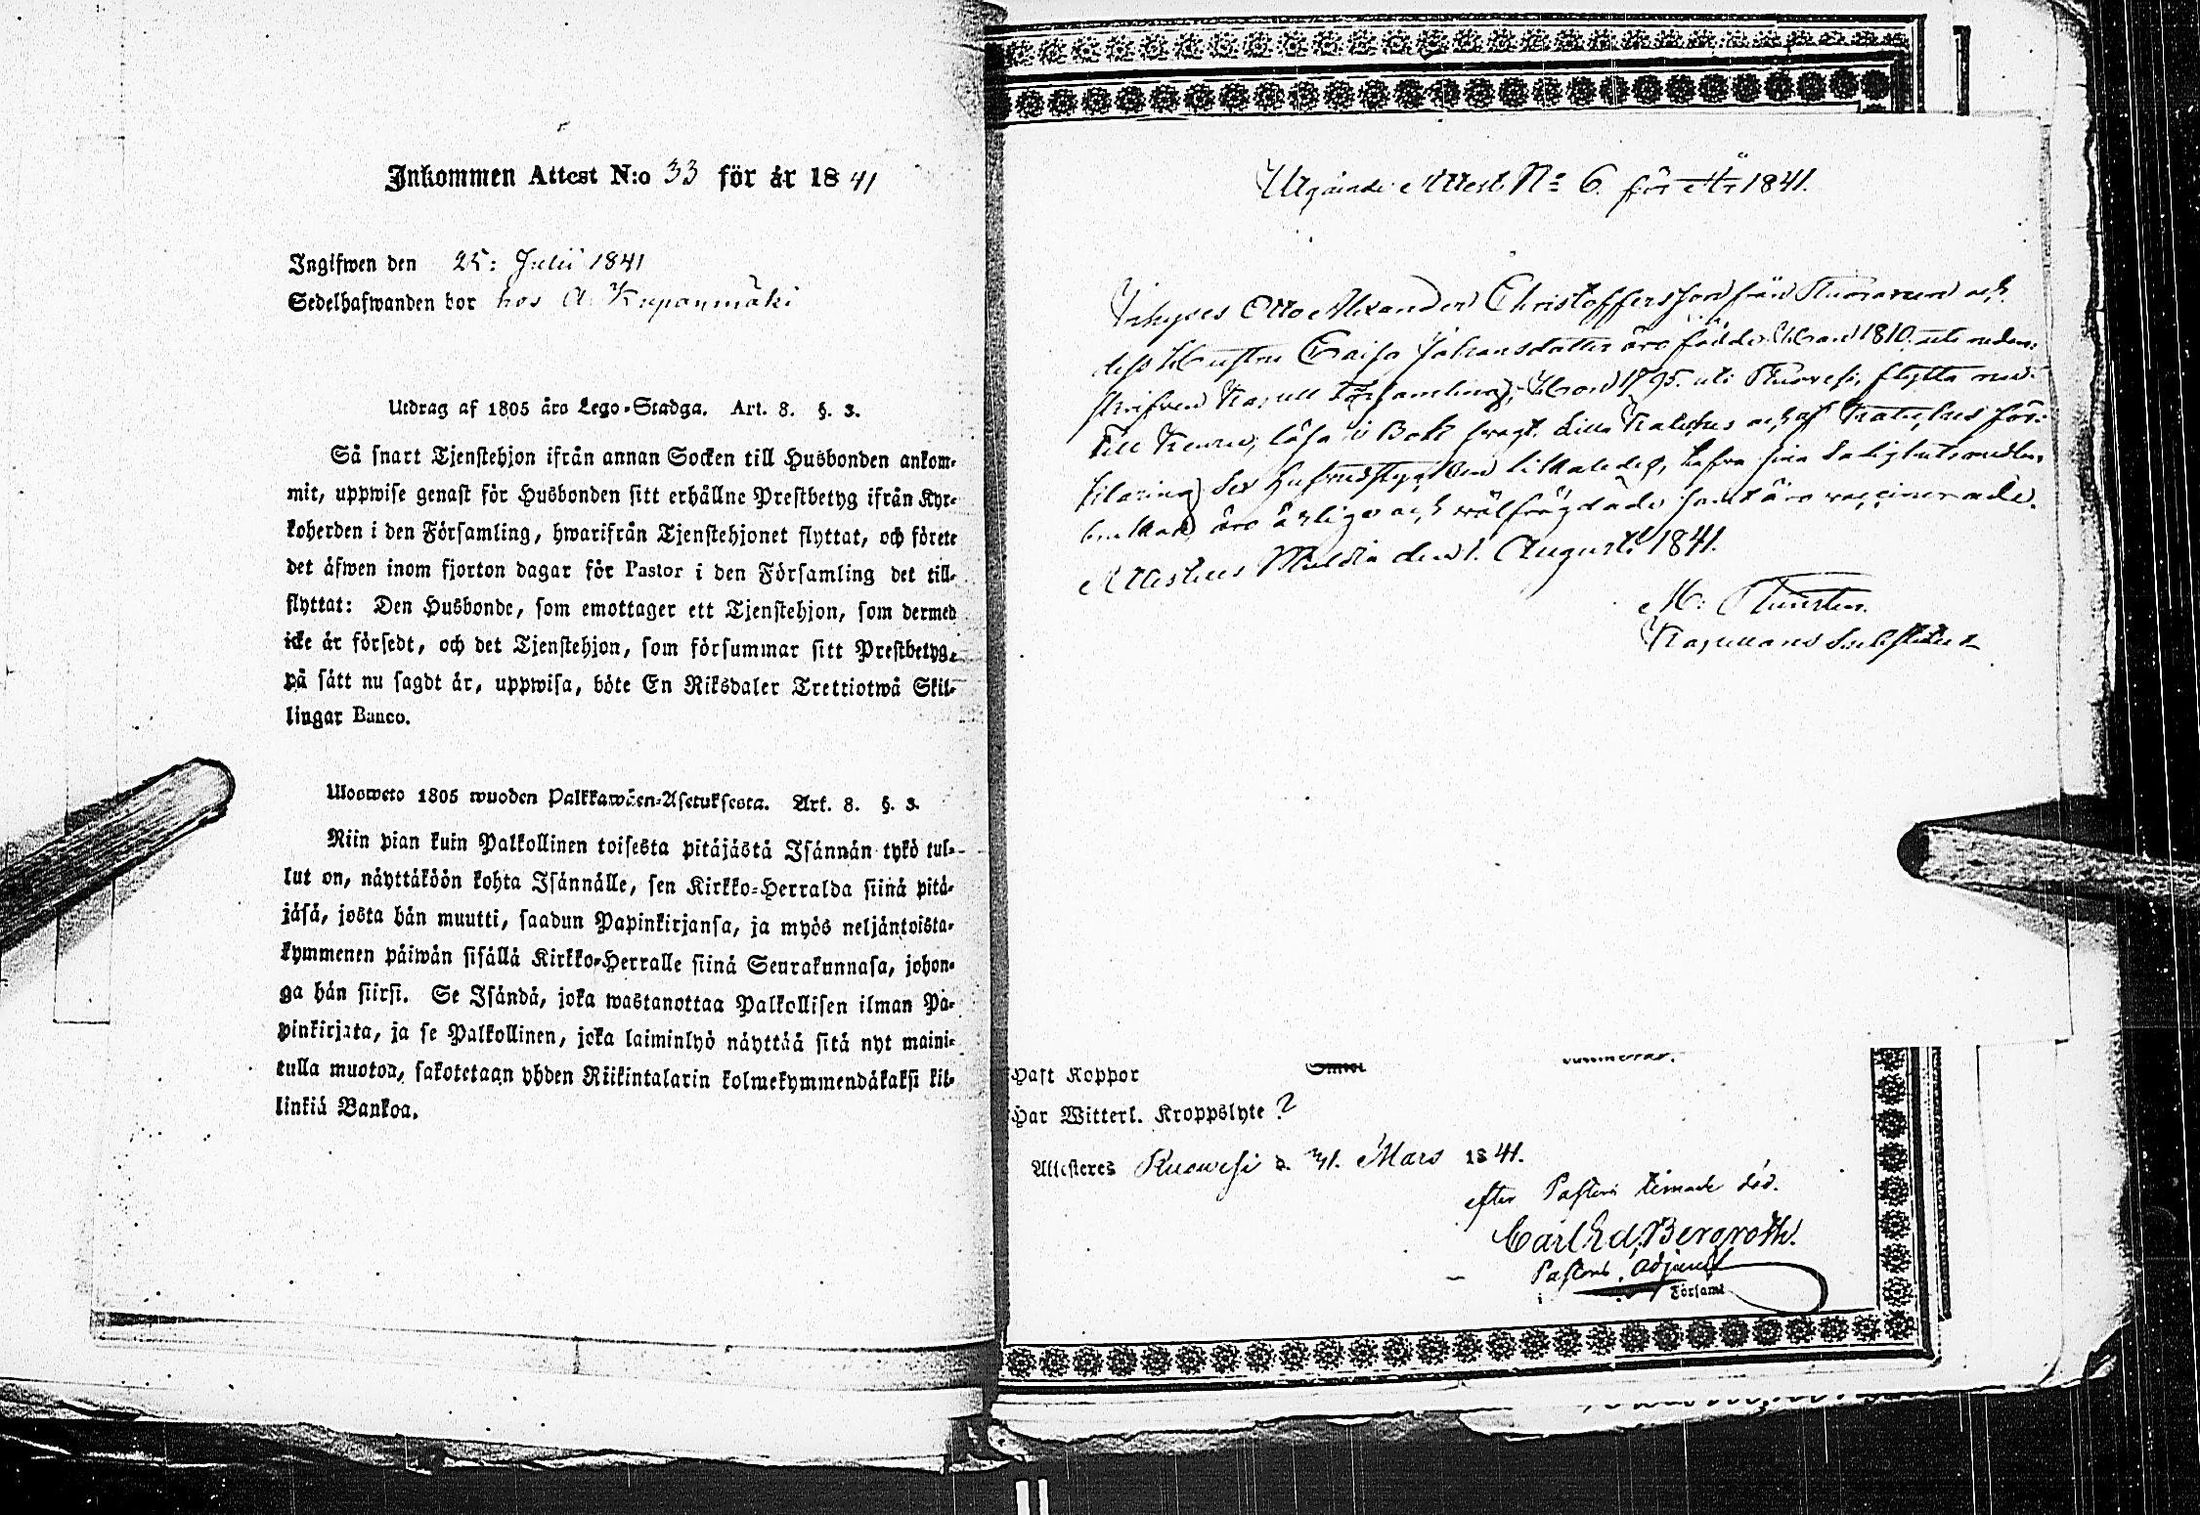 Inkommen Attest N:o 33 för år 1841
Ingifwen den 25: Julii 1841
Sedelhafwanden bor hos A. Kupanmäki
Utdrag af 1805 års Lego-Stadga. Art. 8. §. 3.
Så snart Tjenstehjon ifrån annan Socken till Husbonden ankom-
mit, uppwise genast för Husbonden sitt erhållne Prestbetyg ifrån Kyr-
koherden i den Församling, hwarifrån Tjenstehjonet flyttat, och förete
det äfwen inom fjorton dagar för Pastor i den Församling det till-
flyttat: Den Husbonde, som emottager ett Tjenstehjon, som dermed
icke är försedt, och det Tjenstehjon, som försummar sitt Prestbetyg,
på sätt nu sagdt är, uppwisa, böte En Riksdaler Trettiotwå Skil-
lingar Banco.
Ulosweto 1805 wuoden Palkkawäen-Asetuksesta. Art. 8. §. 3.
Niin pian kuin Palkollinen toisesta pitäjästä Isännän tykö tul-
lut on, näyttäköön kohta Isännälle, sen Kirkko-Herralda siinä pitä-
jäsä, josta hän muutti, saadun Papinkirjansa, ja myös neljäntoista-
kymmenen päiwän sisällä Kirkko-Herralle siinä Seurakunnasa, johon-
ga hän siirsi. Se Isändä, joka wastanottaa Palkollisen ilman Pa-
pinkirjata, ja se Palkollinen, joka laiminlyö näyttää sitä nyt maini-
tulla muotoa, sakotetaan yhden Riikintalarin kolmekymmendäkaksi kil-
linkiä Bankoa.
Utgånde Attest N:o 6. för År 1841.
Otto Alexander Christoffersson från och
dess Hustru Caisa Johansdotter äro födde 1810. uti
församling, 1795. uti Ruovesi, flytta
till läsa i Bok swagt. Lilla och af för-
hafva sin
äro ärlige och wälfrägdade samt äro vaccinerade.
Attesteras den 1. Augusti 1841.
M:
Kapellans Substitut
Haft Koppor
Har Witterl. Kroppslyte ?
Attesteres Ruowesi d. 31. Mars 1841.
efter Pastoris timade död.
Carl Ed. Bergroth.
Pastoris Adjunct
i Församl.